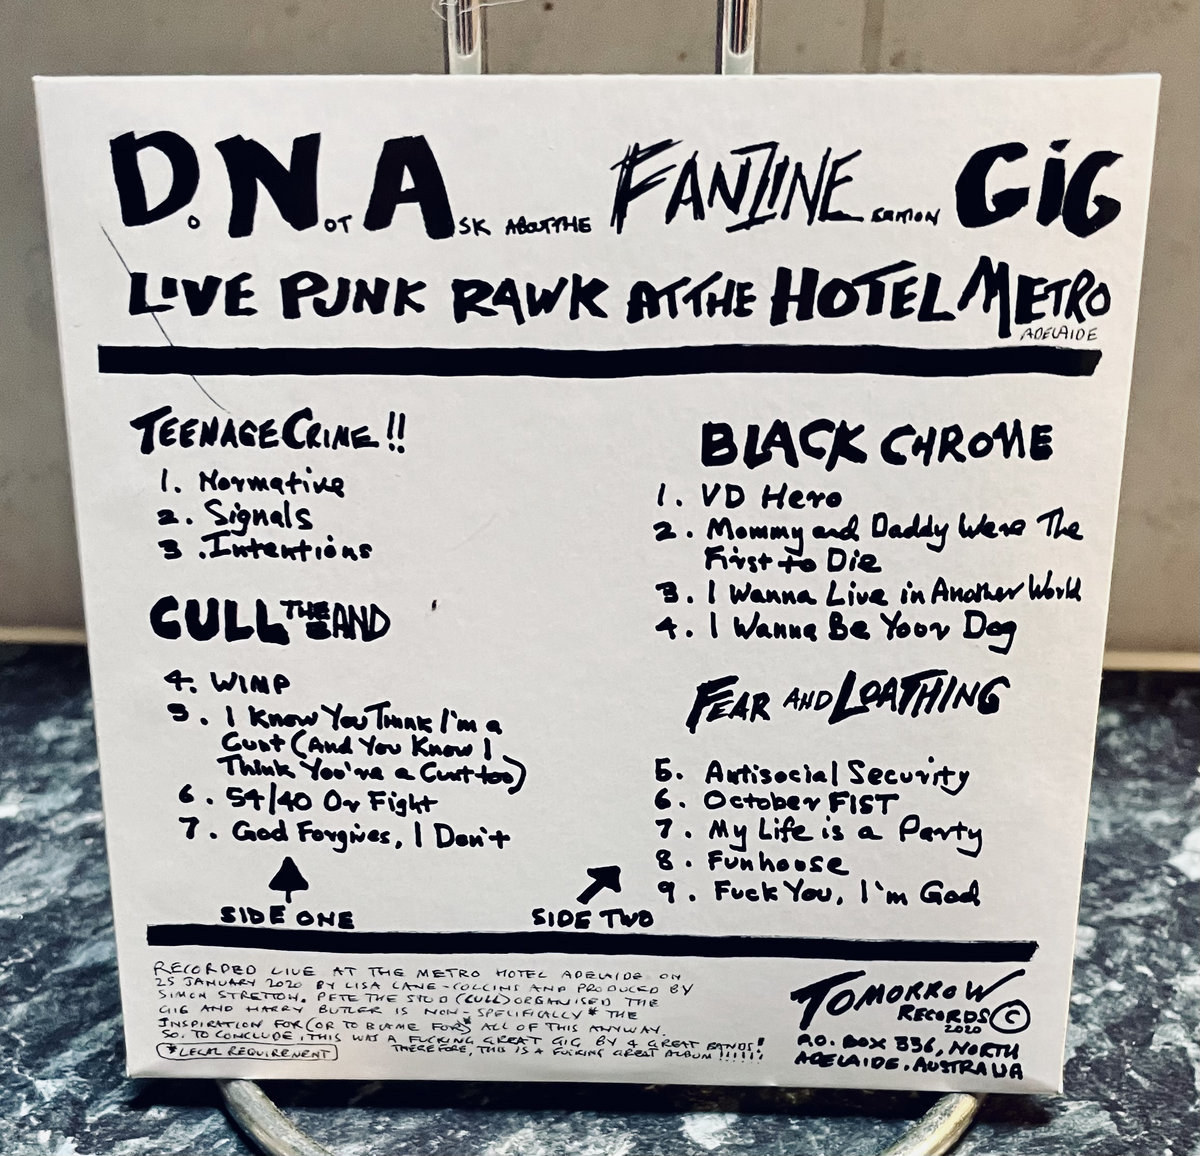 D.O N.OT A.SK ABOUT THE FANZINE EDITION GIG
LIVE PUNK RAWK AT THE HOTEL METRO
ADELAIDE
TEENAGE CRIME!!
1. Normative
2. Signals
3. Intentions
CULL THE BAND
4. WIMP
5. I Know You Think I'm a
Cunt (And You Know I
Think You're a Cunt too)
6. 54/40 Or Fight
7. God Forgives, I Don't
SIDE ONE
BLACK CHROME
1. VD Hero
2. Mommy and Daddy Were The
First to Die
3. I Wanna Live in Another World
4. I Wanna Be Your Dog
FEAR AND LOATHING
5. Antisocial Security
6. October FIST
7. My Life is a Party
8. Funhouse
9. Fuck You, I'm God
SIDE TWO
RECORDED LIVE AT THE METRO HOTEL ADELAIDE ON
25 JANUARY 2020 BY LISA LANE-COLLINS AND PRODUCED BY
SIMON STRETTON. PETE THE STUD (CULL) ORGANISED THE
GIG AND HARRY BUTLER IS NON-SPECIFICALLY* THE
INSPIRATION FOR (OR TO BLAME FOR)* ALL OF THIS ANYWAY.
SO, TO CONCLUDE, THIS WAS A FUCKING GREAT GIG BY 4 GREAT BANDS!
THEREFORE, THIS IS A FUCKING GREAT ALBUM!!!!!!
*LEGAL REQUIREMENT
TOMORROW
RECORDS ©
2020
P.O. BOX 336, NORTH
ADELAIDE, AUSTRALIA